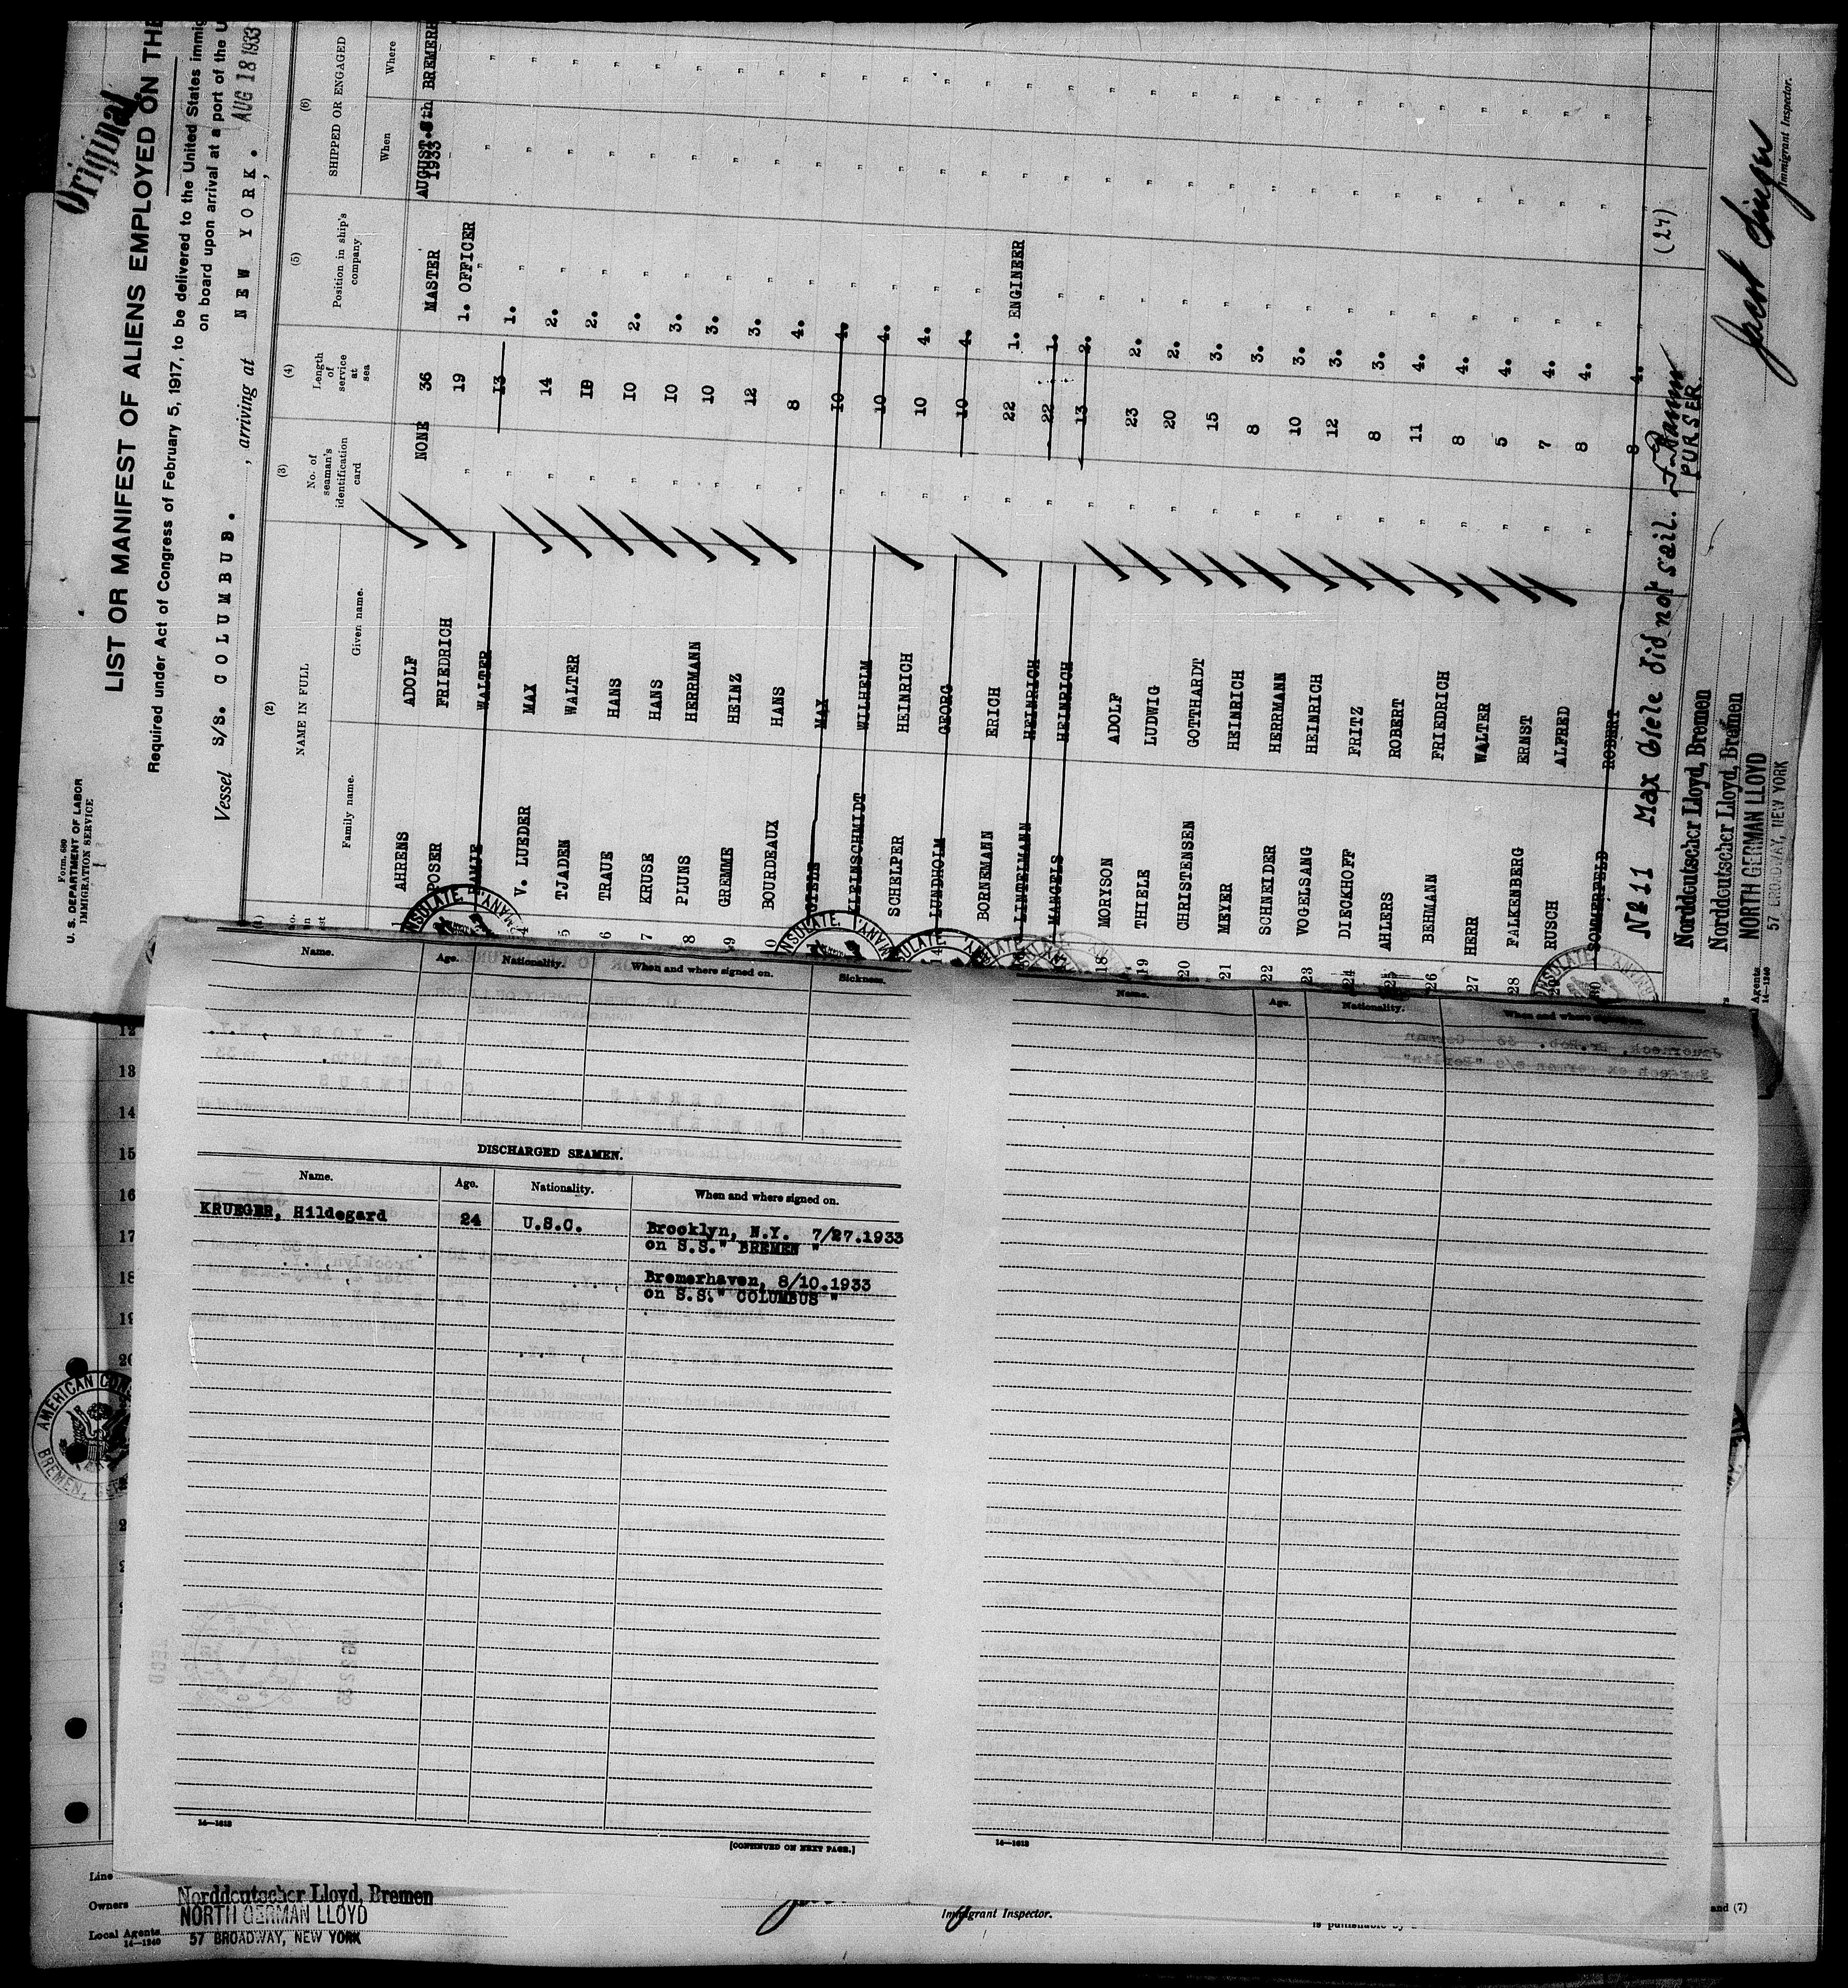 Original
Form 680
U. S. DEPARTMENT OF LABOR
IMMIGRATION SERVICE
LIST OR MANIFEST OF ALIENS EMPLOYED ON THE
Required under Act of Congress of February 5, 1917, to be delivered to the United States immi
on board upon arrival at a port of the U
Vessel S/S. COLUMBUS. , arriving at NEW YORK. , AUG 18 1933
(2) (3) (4) (5) (6)
NAME IN FULL No. of seaman's identification card Length of service at sea Position in ship's company SHIPPED OR ENGAGED
Family name. Given name. When Where
AHRENS ADOLF NONE 36 MASTER AUGUST 8th 1933 BREMERH
POSER FRIEDRICH " 19 1. OFFICER " "
WALTER 13 1. " " "
4 V. LUEDER MAX " 14 2. " " "
5 TJADEN WALTER " 2. " " "
6 TRAUE HANS " 10 2. " " "
7 KRUSE HANS " 10 3. " " "
8 PLUNS HERRMANN " 10 3. " " "
9 GREMME HEINZ " 12 3. " " "
0 BOURDEAUX HANS " 8 4. " " "
GIELE MAX " 10 4. " " "
KLEINSCHMIDT WILHELM " 10 4. " " "
SCHELPER HEINRICH " 10 4. " " "
14 LUNDHOLM GEORG " 10 4. " " "
BORNEMANN ERICH " 22 1. ENGINEER " "
LINTELMANN HEINRICH " 22 1. " " "
MANGELS HEINRICH " 13 2. " " "
18 MORYSON ADOLF " 23 2. " " "
19 THIELE LUDWIG " 20 2. " " "
20 CHRISTENSEN GOTTHARDT " 15 3. " " "
21 MEYER HEINRICH " 8 3. " " "
22 SCHNEIDER HERRMANN " 10 3. " " "
23 VOGELSANG HEINRICH " 12 3. " " "
24 DIECKHOFF FRITZ " 8 3. " " "
25 AHLERS ROBERT " 11 4. " " "
26 BEHMANN FRIEDRICH " 8 4. " " "
27 HERR WALTER " 5 4. " " "
28 FALKENBERG ERNST " 7 4. " " "
29 RUSCH ALFRED " 8 4. " " "
30 SOMMERFELD ROBERT " 8 4. " " "
No 11 Max Giele did not sail. (24)
PURSER.
Norddeutscher Lloyd, Bremen
Norddeutscher Lloyd, Bremen
NORTH GERMAN LLOYD
57 BROADWAY, NEW YORK
Agents
14—1240
Immigrant Inspector.
Name. Age. Nationality. When and where signed on. Sickness.
DISCHARGED SEAMEN.
Name. Age. Nationality. When and where signed on.
KRUEGER, Hildegard 24 U.S.C. Brooklyn, N.Y. 7/27.1933
on S.S." BREMEN "
Bremerhaven, 8/10.1933
on S.S." COLUMBUS "
14—1618
[CONTINUED ON NEXT PAGE.]
Name. Age. Nationality. When and where signed on.
14—1618
12
13
14
15
16
17
18
19
20
AMERICAN CONS
BREMEN, GER
Line
Owners Norddeutscher Lloyd, Bremen
NORTH GERMAN LLOYD
Local Agents 57 BROADWAY, NEW YORK
14—1240
Immigrant Inspector.
and (7)